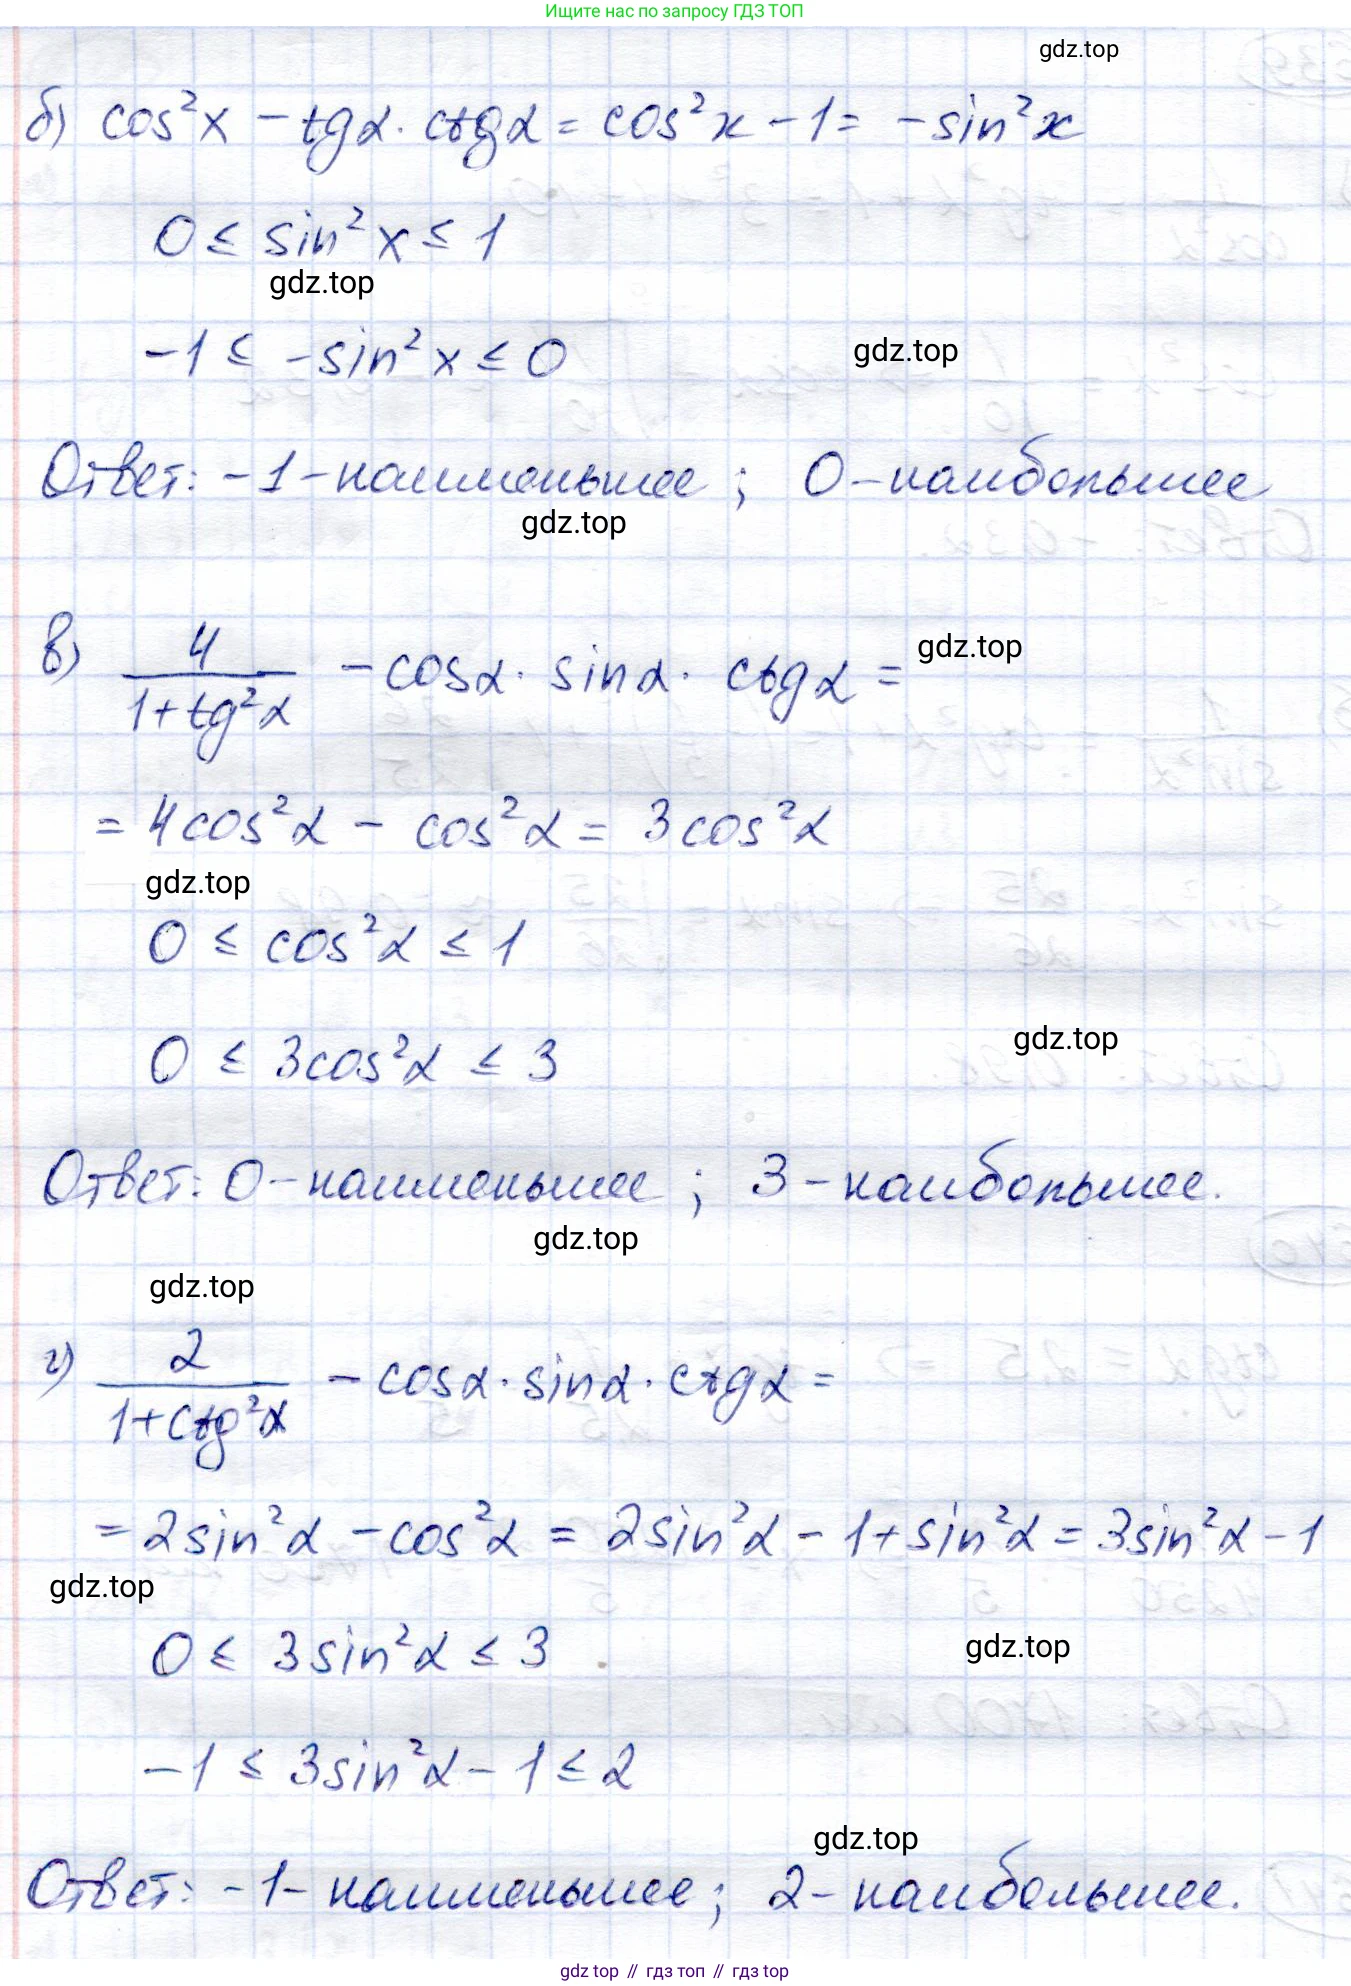 Ищите нас по запросу ГДЗ ТОП
gdz.top
б) cos²x - tgα · ctgα = cos²x - 1 = - sin²x
0 ≤ sin²x ≤ 1
gdz.top
-1 ≤ -sin²x ≤ 0
gdz.top
Ответ: -1 - наименьшее ; 0 - наибольшее
gdz.top
в) 4/(1+tg²α) - cosα · sinα · ctgα =
gdz.top
= 4cos²α - cos²α = 3cos²α
gdz.top
0 ≤ cos²α ≤ 1
gdz.top
0 ≤ 3cos²α ≤ 3
Ответ: 0 - наименьшее ; 3 - наибольшее.
gdz.top
gdz.top
г) 2/(1+ctg²α) - cosα · sinα · ctgα =
= 2sin²α - cos²α = 2sin²α - 1 + sin²α = 3sin²α - 1
gdz.top
0 ≤ 3sin²α ≤ 3
gdz.top
-1 ≤ 3sin²α - 1 ≤ 2
gdz.top
Ответ: -1 - наименьшее ; 2 - наибольшее.
gdz top // гдз топ // гдз top